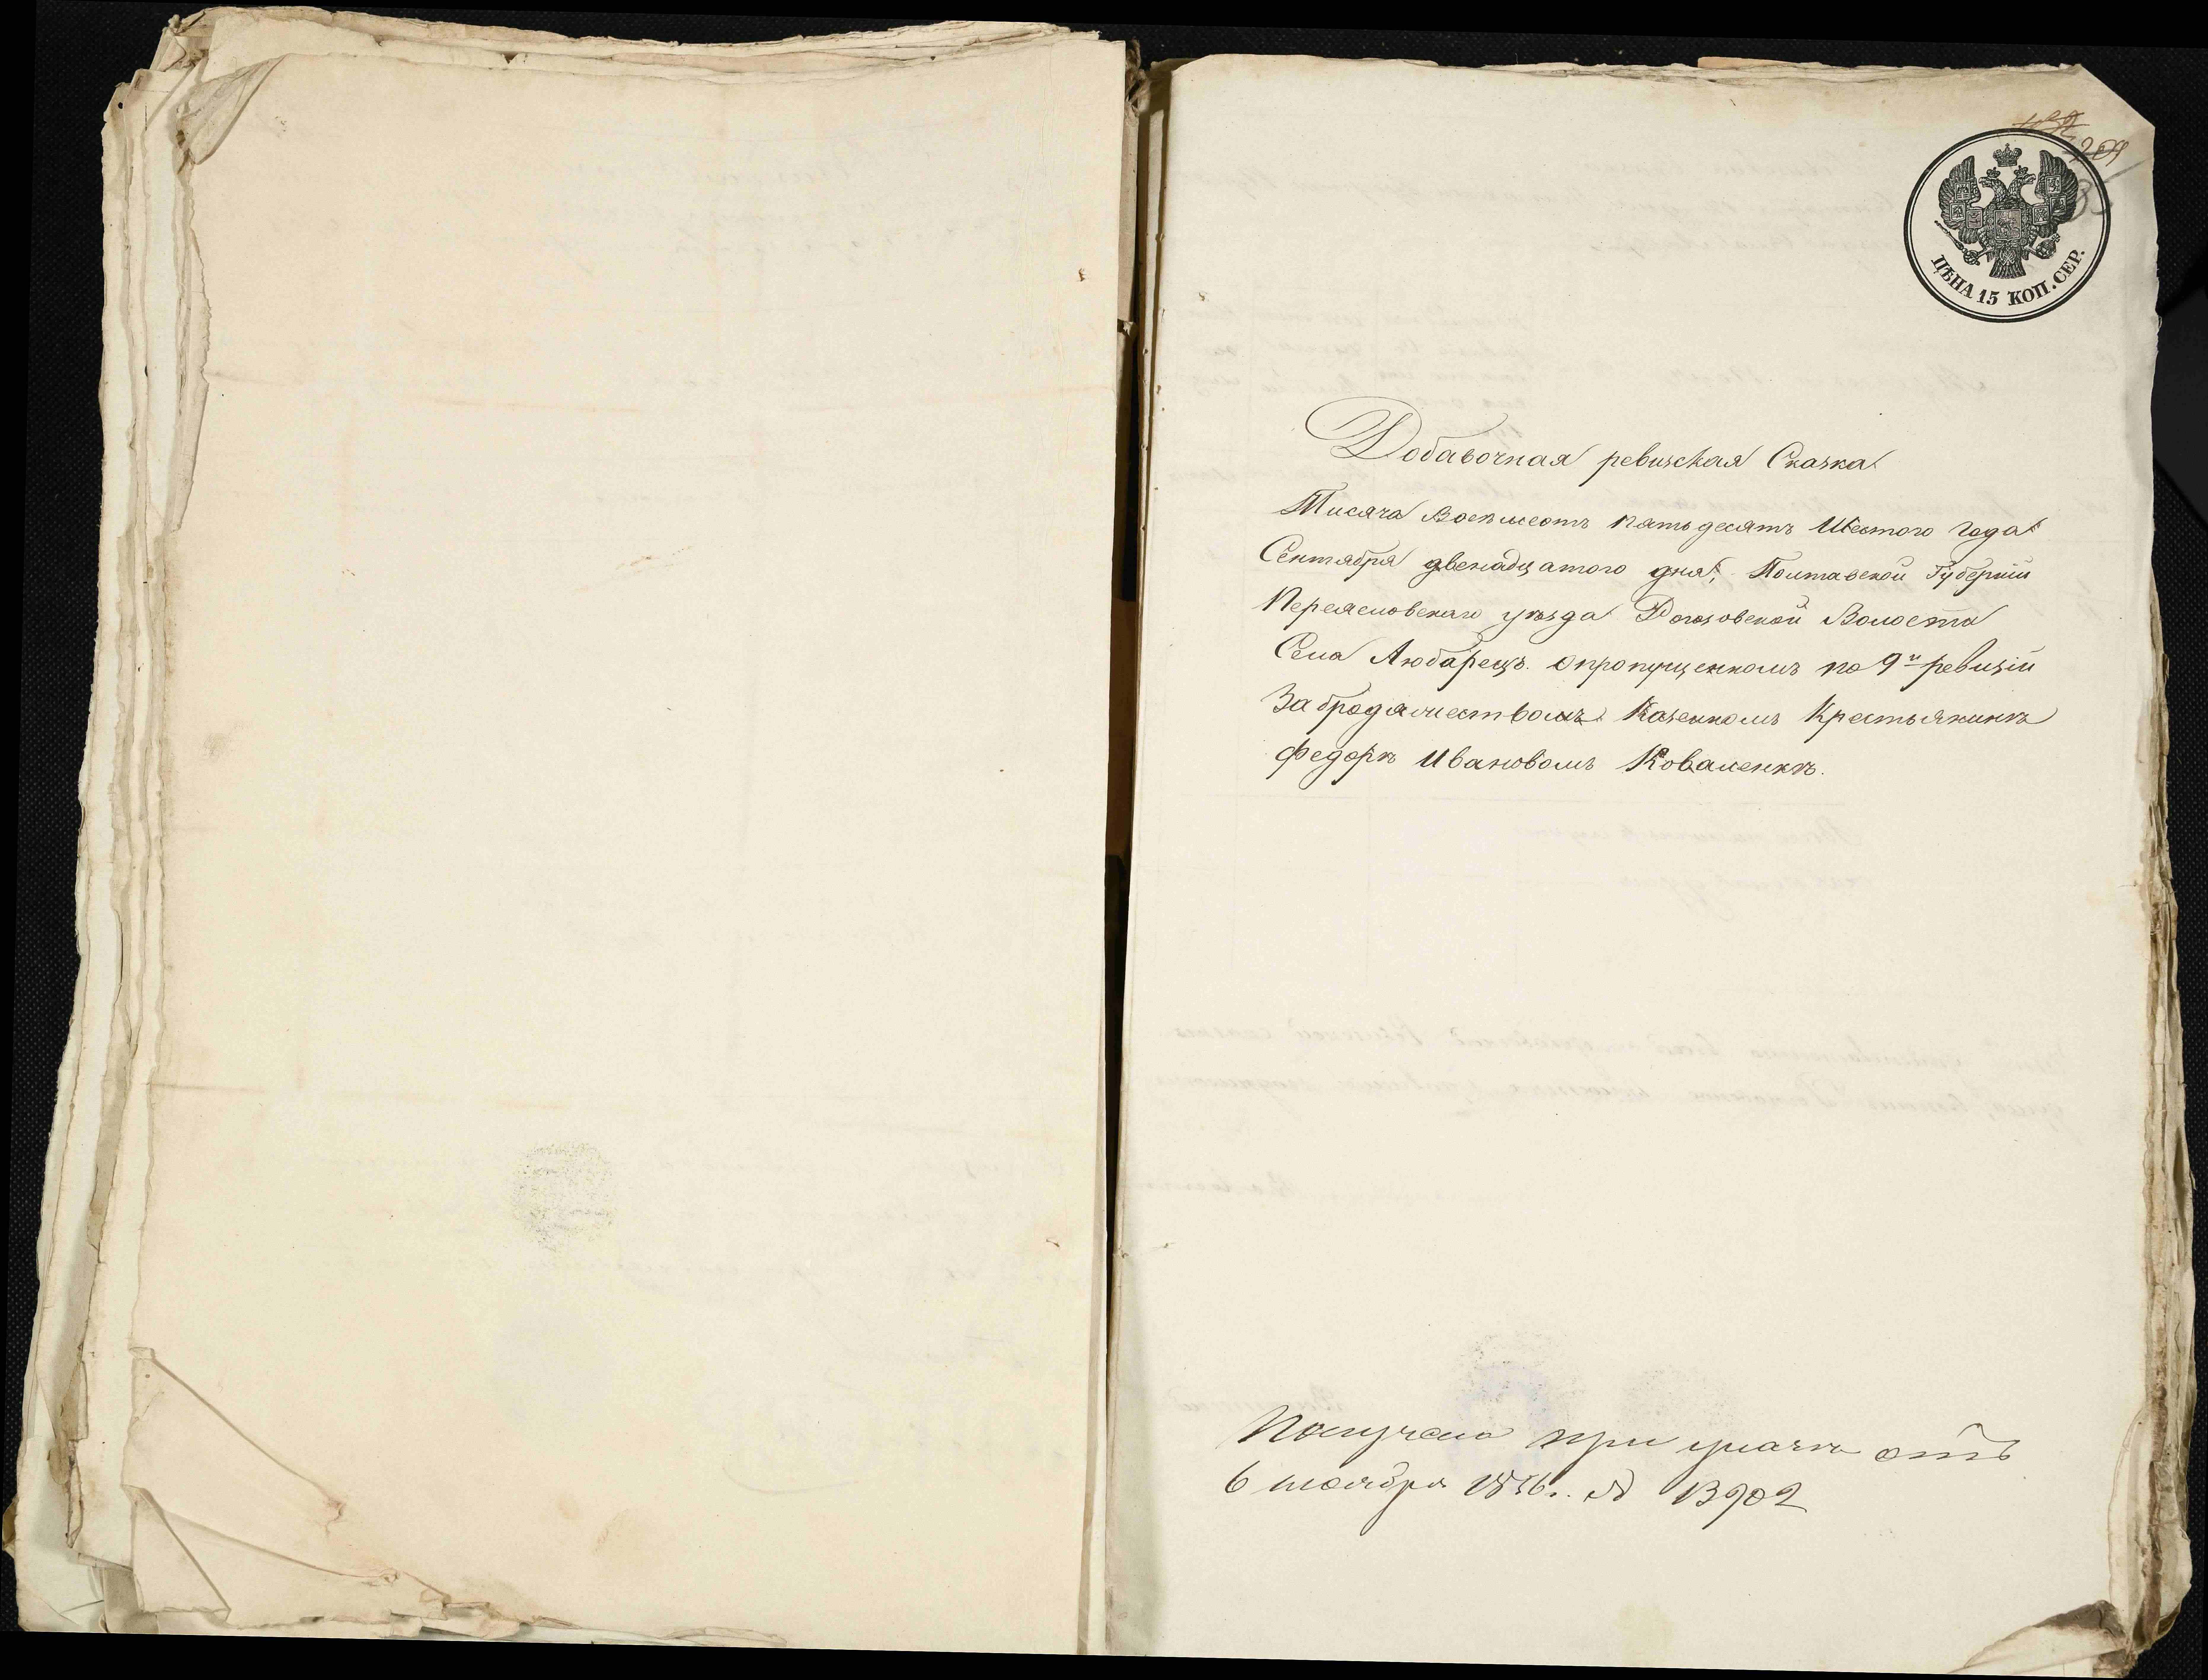 209
ЦѢНА 15 КОП. СЕР.
Добавочная ревизская Сказка
Тисяча Восемсотъ пятьдесятъ Шестого года
Сентября двенадцатого дня, Полтавской Губерніи
Переясловскаго уѣзда Рогозовской Волости
Села Любарецъ. опропущенномъ по 9й ревизіи
За бродяжествомъ Казенномъ Крестьянинѣ
Федорѣ Ивановомъ Коваленкѣ.
Получена при указѣ отъ
6 ноября 1856 г. № 13902